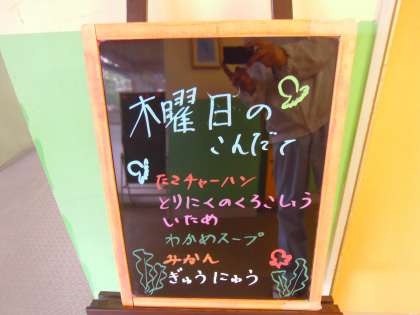 木曜日の
こんだて
たこチャーハン
とりにくのくろこしょう
いため
わかめスープ
みかん
ぎゅうにゅう